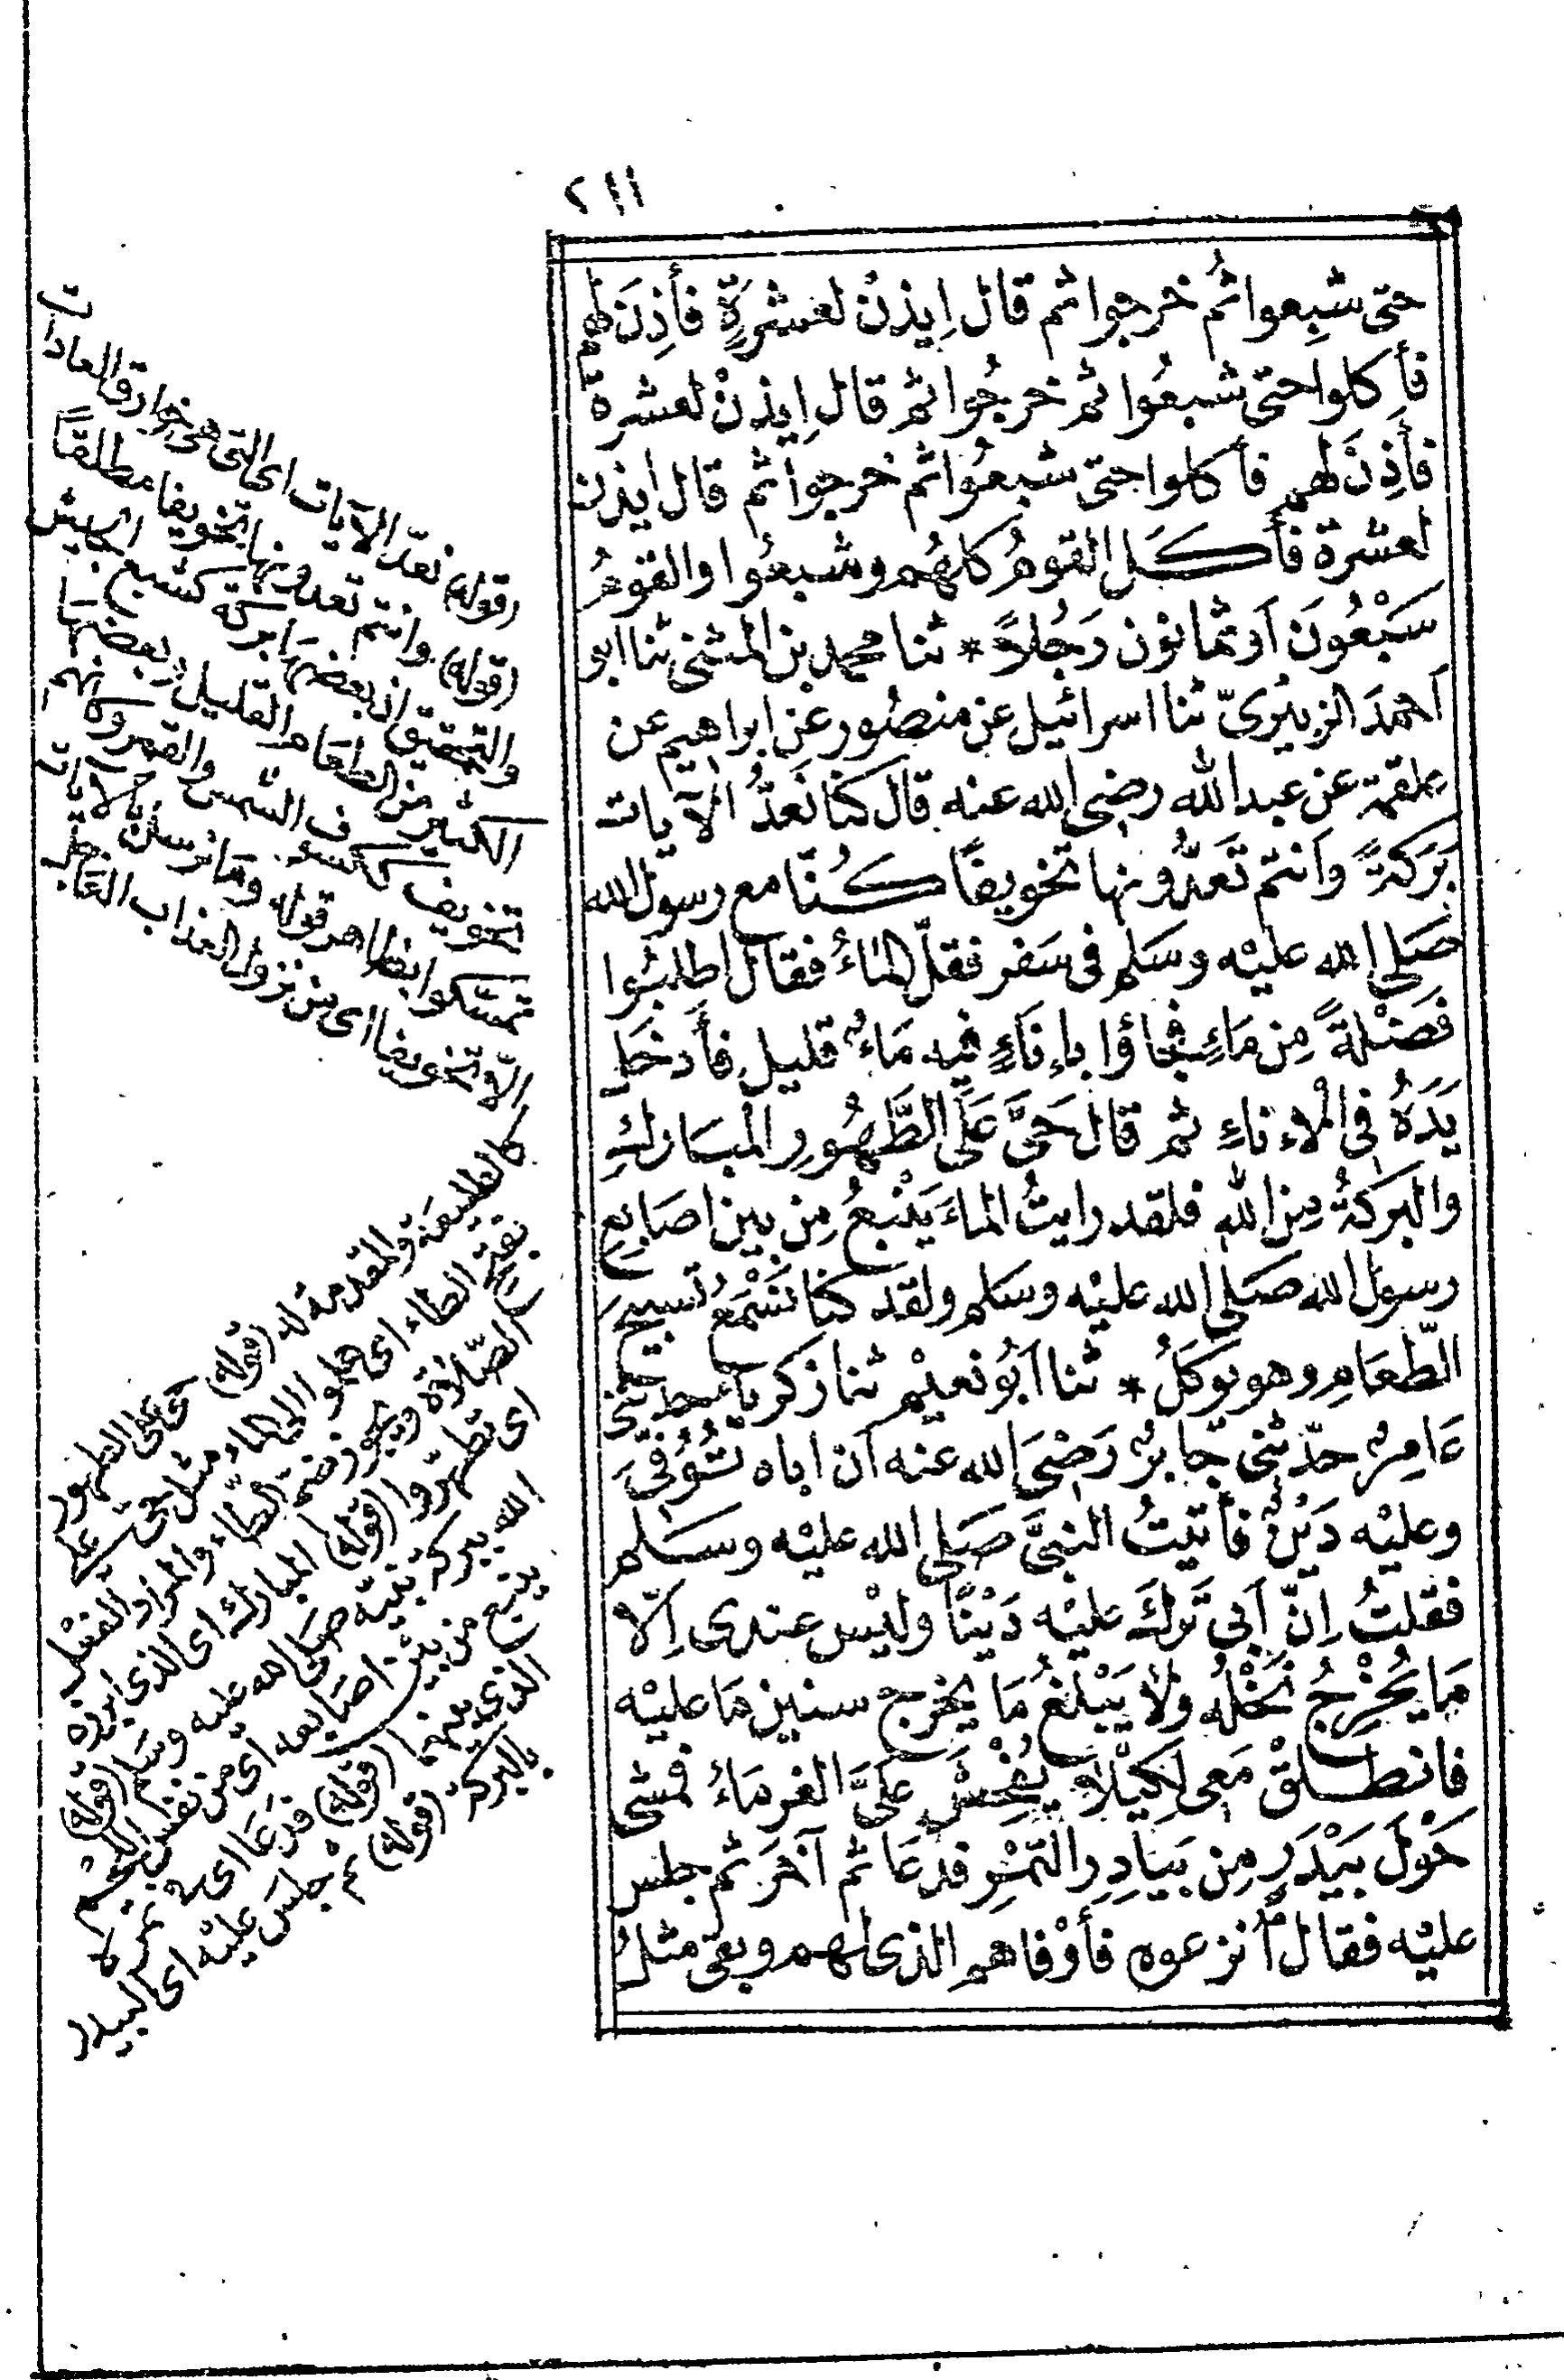 ٢١١
حتى شبِعوا ثُم خرجوا ثم قال اِيذنْ لعشرةٍ فأَذِنَ لهم
فأكلوا حتى شبعُوا ثم خرجُوا ثم قال اِيذنْ لعشرة
فأَذِنَ لهم فأكلوا حتى شبعُوا ثم خرجوا ثم قال ايذن
لعشرة فأَكل القومُ كلهُم وشبعُوا والقومُ
سَبْعُونَ اَو ثمانون رَجُلاً * ثنا محمد بن المثنى ثنا ابى
اَحمدَ الزبيرىّ ثنا اسرائيل عن منصُور عن ابراهيم عن
علقمة عن عبد الله رضى الله عنه قال كنا نَعدُّ الآيات
بَرَكةً وَانتم تَعدُّونها تخويفًا كُنّا مع رسول الله
صَلى الله عليْه وسَلم فى سَفر فقلّ الماءُ فقال اطلبُوا
فَضْلةً مِن مَاءٍ فجاؤا بإناءٍ فيه مَاءٌ قليل فأَدخل
يَدَهُ فى الاناءِ ثم قال حَىَّ عَلَى الطَّهُورِ المبَارَكِ
والبَرَكةُ مِن اللهِ فلقد رايتُ الماءَ يَنْبعُ مِن بين اصَابعِ
رسول الله صَلى الله عليْه وسَلم ولقد كنا نَسْمَعُ تسبيحَ
الطّعَامِ وهو يوكَلُ * ثنا اَبُو نعيْم ثنا زكرياءُ حدّثنى
عَامِرٌ حدّثنى جابرٌ رَضىَ الله عنه اَن اباه تُوُفِّىَ
وعليْه دَيْنٌ فأَتيتُ النبىَّ صَلى الله عليْه وسَلم
فقلتُ اِنّ اَبِى تَرَكَ عليْه دَيْنًا وليْس عندى اِلّا
مَا يُخْرِجُ نَخْلُهُ ولاَ يَبْلغُ مَا يخرج سنين مَا عليْه
فانطلقْ مَعى لِكيْلا يُفْحِشَ عَلىَّ الغرمَاءُ فمشى
حَوْلَ بَيْدَرٍ مِن بَيَادِرِ التمْرِ فدعَا ثم آخَرَ ثم جلس
عليْه فقال اَنزعوه فأَوْفاهم الذى لهم وبقى مثلُ
(قوله) نعدّ الآيات اى التى هى خوارق العادات
(قوله) وانتم تعدونها تخويفا مطلقاً
والتحقيق ان بعضهَا بركة كشبع الجيش
الكثير من الطعَام القليل وبعضهَا
تخويف ككسوف الشمس والقمر وكانهم
تمسّكوا بظاهر قوله ومَا نرسل بالآيات
الّا تخويفا اى من نزول العذاب العَاجل
كالطليعَة والمقدمة له (قوله) حى على الطهور
بفتح الطاء اى هلموا الى الماء مثل حى على
الصّلاة ويجوز ضم الطّاء والمرَاد الفعْل
اى تطهّروا (قوله) المبارك اى الذى امده
الله ببركة نبيّه صَلى الله عليه وسَلم (قوله)
ينبع من بيْن اصَابعه اى من نفس اللحْم
الذى بينهما (قوله) فدعَا اى فى تمره
بالبركة (قوله) ثم جلسَ عليْه اى البيدر